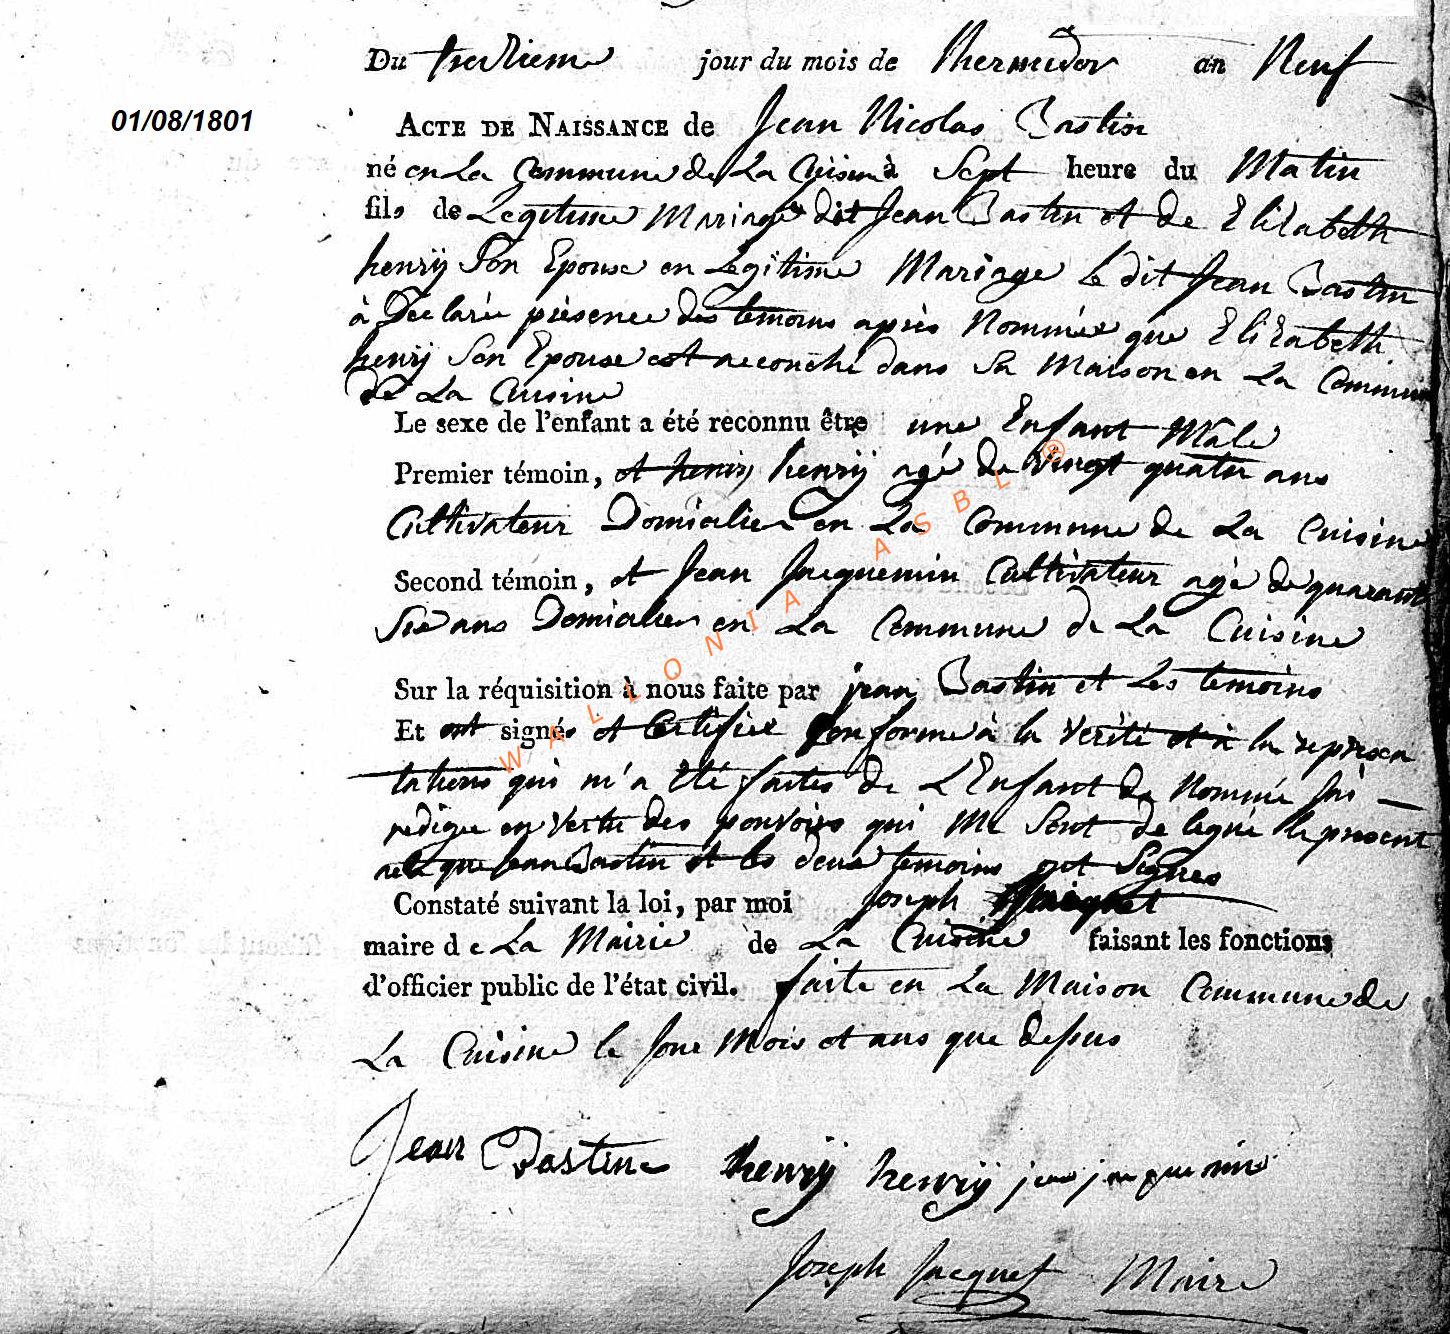 Du treizieme jour du mois de thermidor an Neuf
01/08/1801
ACTE DE NAISSANCE de Jean Nicolas Bastin
né en La Commune de La Cuisine à Sept heure du Matin
fils de Legitime Mariage dit Jean Bastin et de Elizabeth
henrÿ Son Epouse en Legitime Mariage Le dit Jean Bastin
à Declarée présence des temoins après Nommée que Elizabeth
henrÿ Son Epouse est acconché dans Sa Maison en La Commune
de La Cuisine
Le sexe de l'enfant a été reconnu être une Enfant Male
Premier témoin, et henrÿ henrÿ agé de vingt quatre ans
Cultivateur Domicilier en La Commune de La Cuisine
Second témoin, et Jean Jacquemin Cultivateur agé de quarante
Six ans Domicilier en La Commune de La Cuisine
Sur la réquisition à nous faite par jean Bastin et Les temoins
Et ont signés et Certifiée Conforme à la Verité et à la represen
tations qui m'a été faites de L'Enfant de Nommée Jai
redigee en Vertu des pouvoirs qui Me Sont de legué le present
acte que Jean Bastin et les deux temoins ont Signes
Constaté suivant la loi, par moi Joseph Jacquet
maire de La Mairie de La Cuisine faisant les fonctions
d'officier public de l'état civil. faite en La Maison Commune de
La Cuisine le Jour Mois et ans que dessus
Jean Bastin henrÿ henrÿ jean jacquemin
Joseph Jacquet Maire
WALLONIA ASBL ®